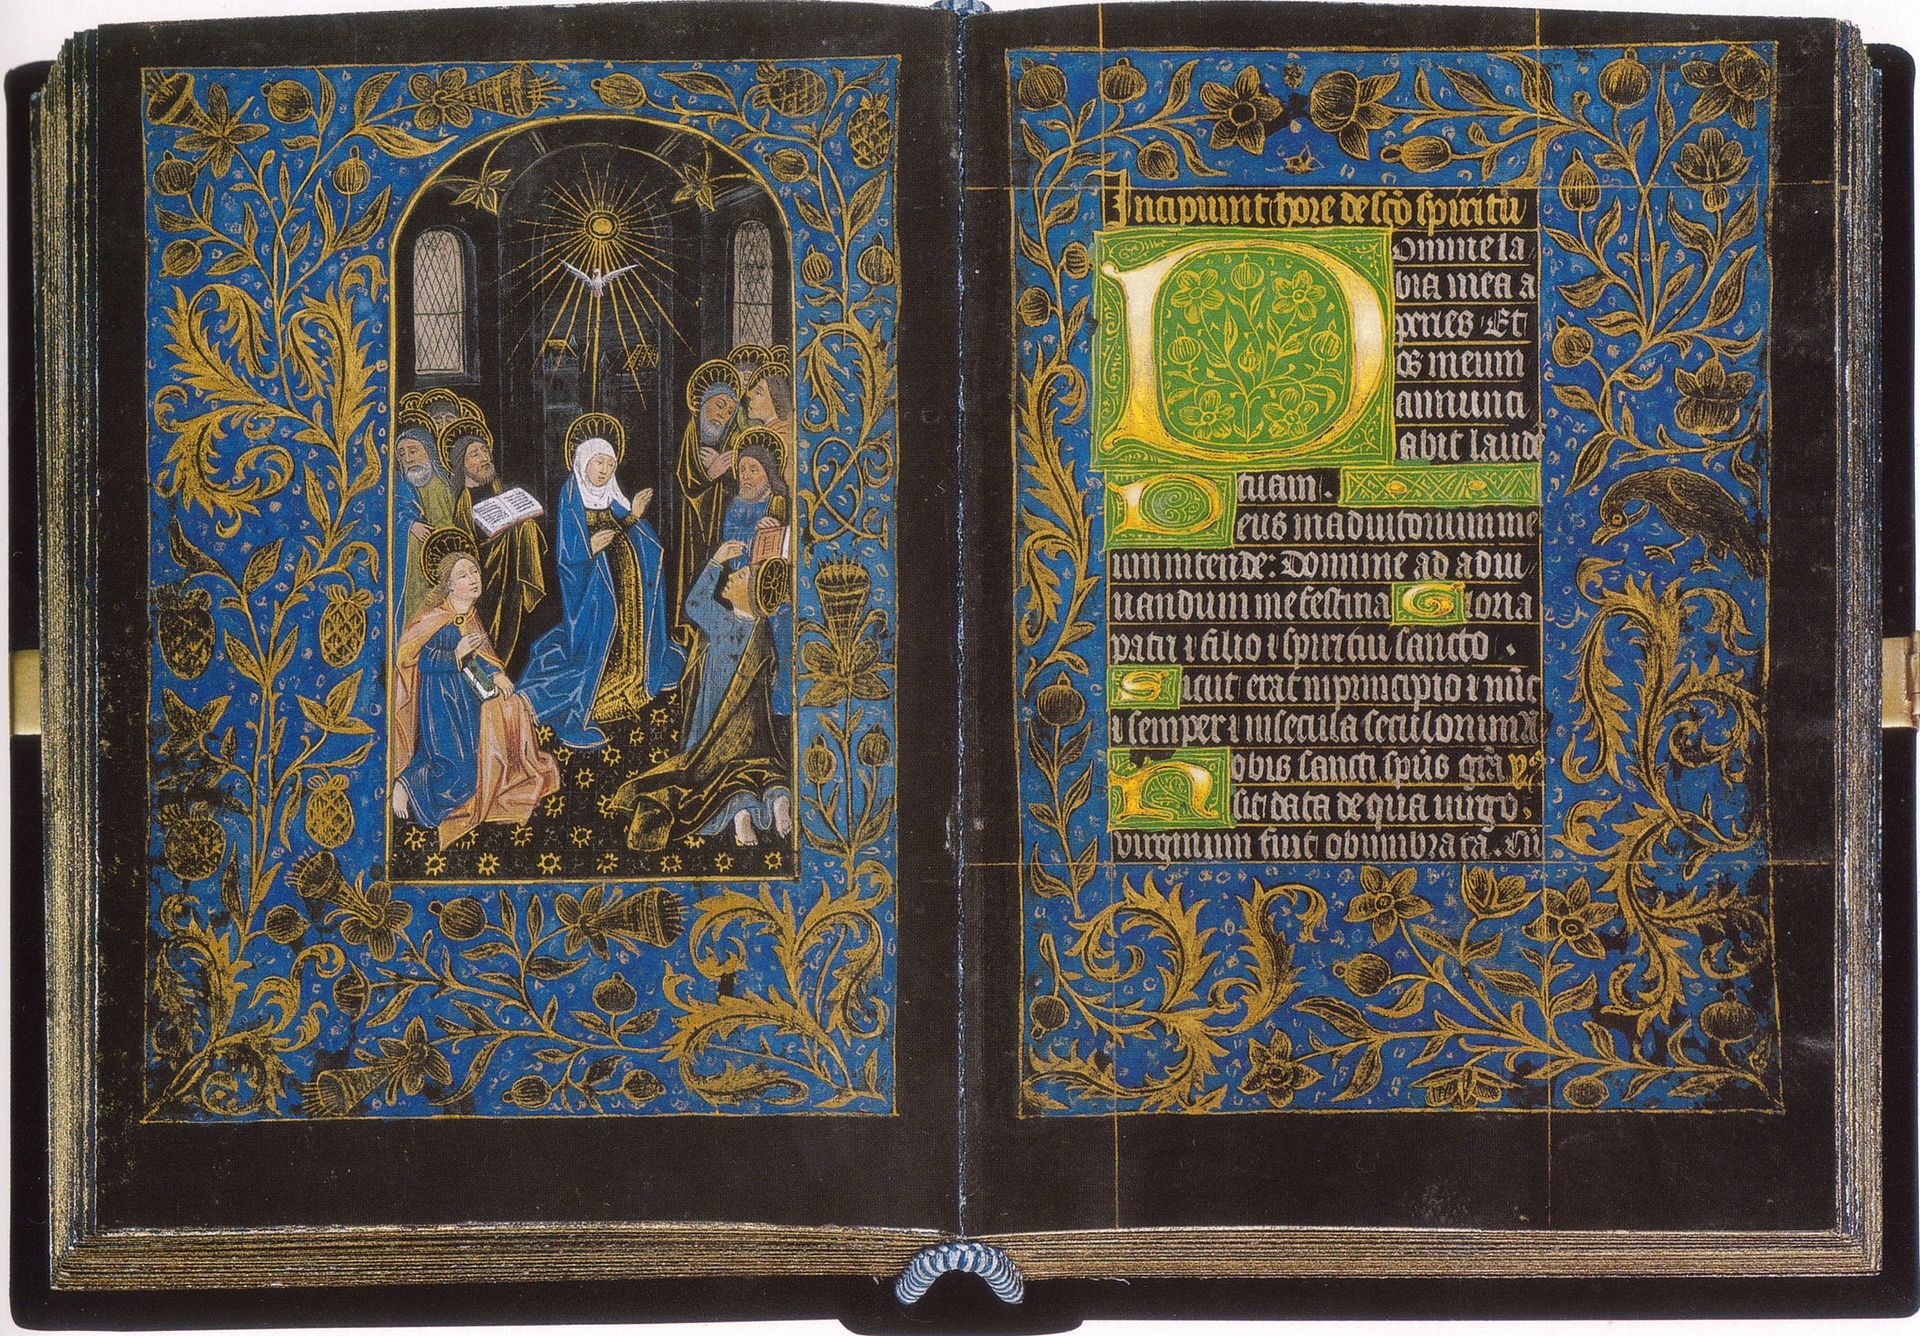 Incipiunt hore de sco spiritu
Domine la
bia mea a
peries Et
os meum
annunti
abit laudē
tuam .
Deus in adiutorium me
um intende : Domine ad adiu
uandum me festina Gloria
patri ⁊ filio ⁊ spiritui sancto .
Sicut erat in principio ⁊ nūc
⁊ semper ⁊ in secula seculorum A
Nobis sancti spūs grā ymꝰ
sit data de qua uirgo
virginum fuit obumbrata . Cū